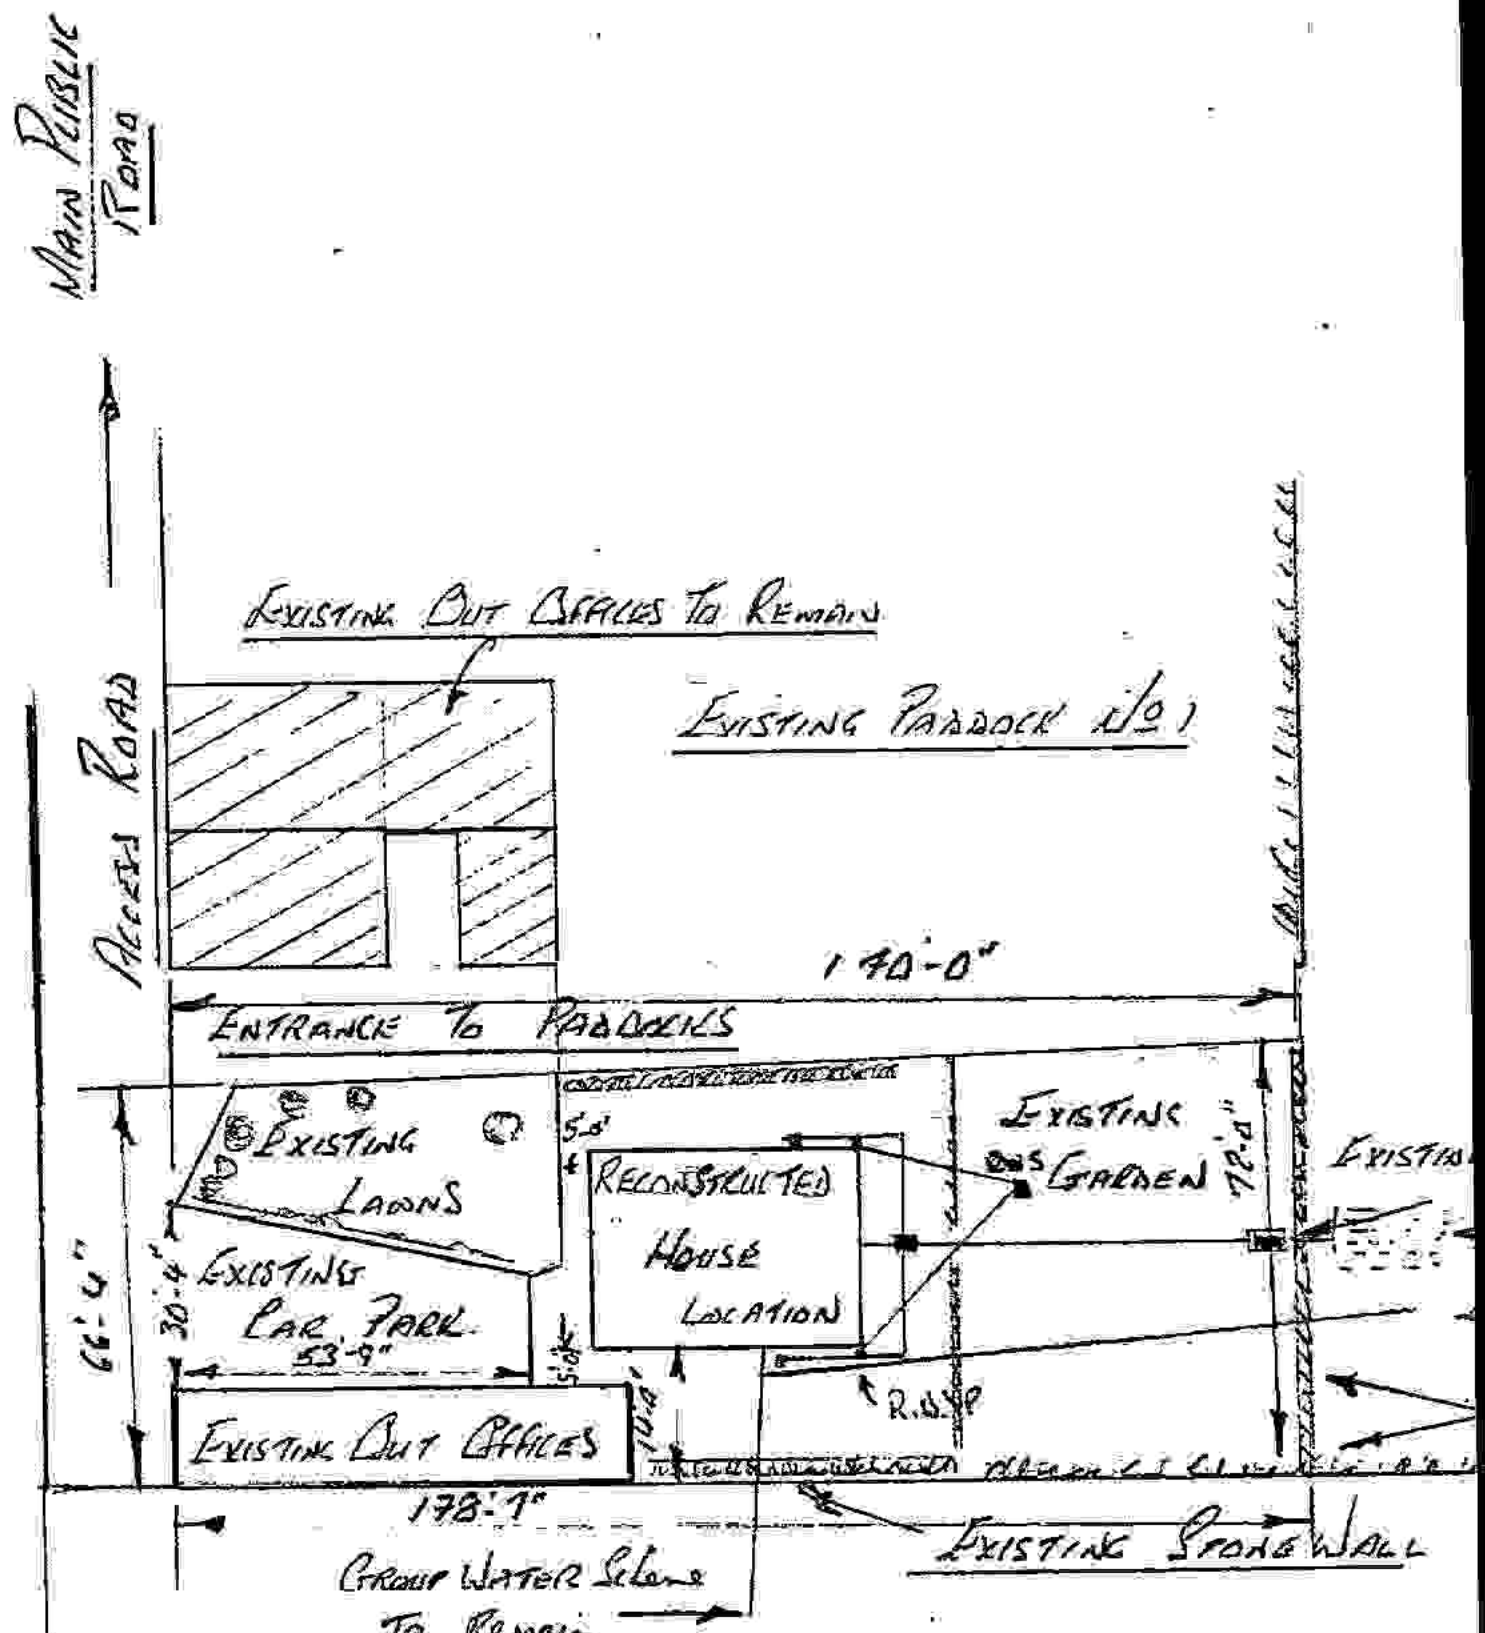 MAIN PUBLIC
ROAD
EXISTING OUT OFFICES TO REMAIN
EXISTING PADDOCK No 1
ACCESS ROAD
170'-0"
ENTRANCE TO PADDOCKS
EXISTING
LAWNS
5'-0"
RECONSTRUCTED
HOUSE
LOCATION
EXISTING
GARDEN
72'-0"
66'-4"
30'-4"
EXISTING
CAR PARK
53'-9"
5'-0"
14'-0"
R.W.P
EXISTING OUT OFFICES
178'-7"
EXISTING STONE WALL
GROUP WATER Scheme
TO REMAIN